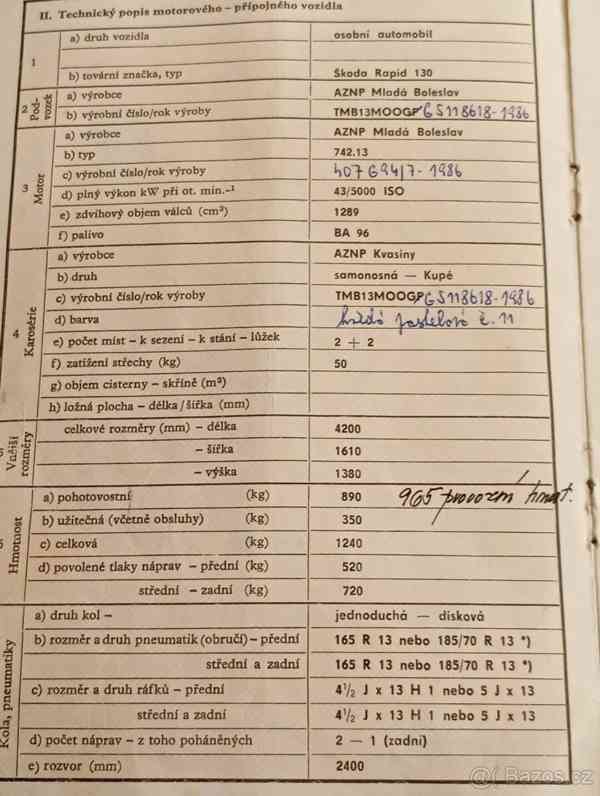 II. Technický popis motorového – přípojného vozidla
1
a) druh vozidla osobní automobil
b) tovární značka, typ Škoda Rapid 130
2 Pod-vozek
a) výrobce AZNP Mladá Boleslav
b) výrobní číslo/rok výroby TMB13MOOGP G5118618-1986
3 Motor
a) výrobce AZNP Mladá Boleslav
b) typ 742.13
c) výrobní číslo/rok výroby 407694/7-1986
d) plný výkon kW při ot. min.-1 43/5000 ISO
e) zdvihový objem válců (cm3) 1289
f) palivo BA 96
4 Karosérie
a) výrobce AZNP Kvasiny
b) druh samonosná — Kupé
c) výrobní číslo/rok výroby TMB13MOOGP G5118618-1986
d) barva hnědá pastelová č. 11
e) počet míst – k sezení – k stání – lůžek 2 + 2
f) zatížení střechy (kg) 50
g) objem cisterny – skříně (m3)
h) ložná plocha – délka/šířka (mm)
Vnější rozměry
celkové rozměry (mm) – délka 4200
– šířka 1610
– výška 1380
Hmotnost
a) pohotovostní (kg) 890 965 provozní hmot.
b) užitečná (včetně obsluhy) (kg) 350
c) celková (kg) 1240
d) povolené tlaky náprav – přední (kg) 520
střední – zadní (kg) 720
Kola, pneumatiky
a) druh kol – jednoduchá — disková
b) rozměr a druh pneumatik (obručí) – přední 165 R 13 nebo 185/70 R 13 *)
střední a zadní 165 R 13 nebo 185/70 R 13 *)
c) rozměr a druh ráfků – přední 4½ J x 13 H 1 nebo 5 J x 13
střední a zadní 4½ J x 13 H 1 nebo 5 J x 13
d) počet náprav – z toho poháněných 2 — 1 (zadní)
e) rozvor (mm) 2400
Bazos.cz